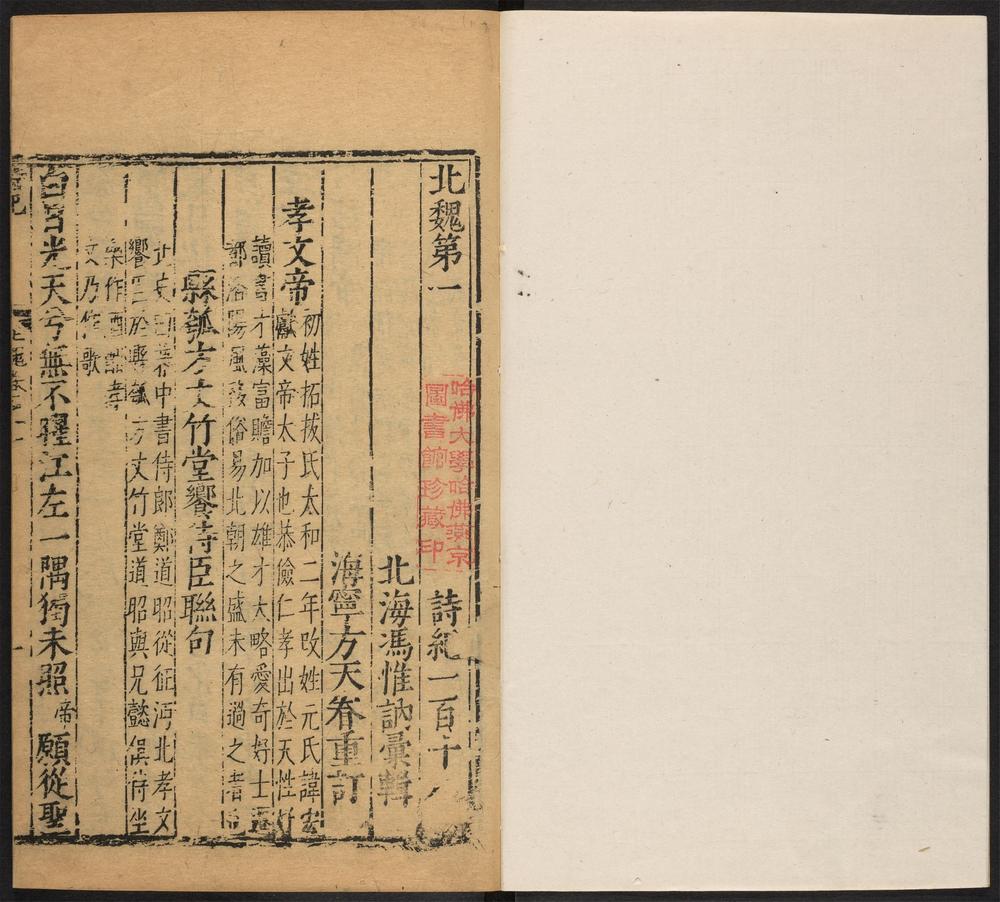 北魏第一　詩紀一百十八
北海馮惟訥彙輯
海寧方天眷重訂
孝文帝
初姓拓拔氏太和二年改姓元氏諱宏
獻文帝太子也恭儉仁孝出於天性
讀書才藻富贍加以雄才大略愛奇好士遷
都洛陽風移俗易北朝之盛未有過之者
縣瓠方丈竹堂饗侍臣聯句
北史曰 中書侍郎鄭道昭從征沔北孝文
饗臣於縣瓠方丈竹堂道昭與兄懿俱侍坐
樂作酒酣孝
文乃作歌
白日光天兮無不曜江左一隅獨未照帝願從聖
詩紀
北魏卷一
一
哈佛大學哈佛燕京
圖書館珍藏印